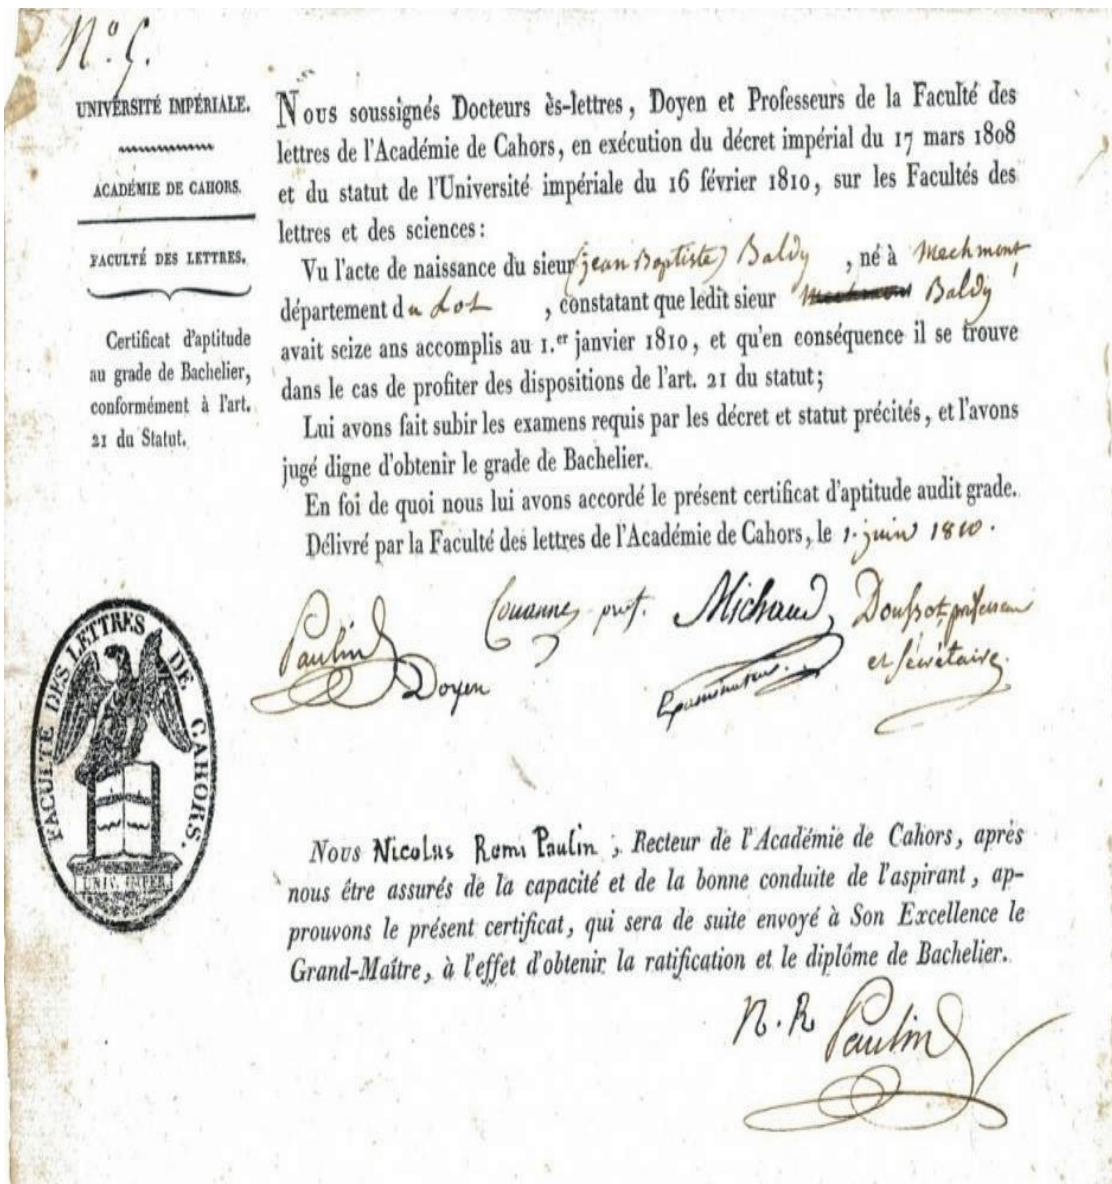 N.º 5.
UNIVERSITÉ IMPÉRIALE.
ACADÉMIE DE CAHORS.
FACULTÉ DES LETTRES.
Certificat d'aptitude
au grade de Bachelier,
conformément à l'art.
21 du Statut.
Nous soussignés Docteurs ès-lettres, Doyen et Professeurs de la Faculté des
lettres de l'Académie de Cahors, en exécution du décret impérial du 17 mars 1808
et du statut de l'Université impériale du 16 février 1810, sur les Facultés des
lettres et des sciences :
Vu l'acte de naissance du sieur (jean Baptiste) Baldy , né à Mechmont
département du Lot , constatant que ledit sieur Mechmont Baldy
avait seize ans accomplis au 1.er janvier 1810, et qu'en conséquence il se trouve
dans le cas de profiter des dispositions de l'art. 21 du statut ;
Lui avons fait subir les examens requis par les décret et statut précités, et l'avons
jugé digne d'obtenir le grade de Bachelier.
En foi de quoi nous lui avons accordé le présent certificat d'aptitude audit grade.
Délivré par la Faculté des lettres de l'Académie de Cahors, le 1. juin 1810.
Paulin Doyen
prof.
Michaud, Examinateur
professeur et Sécrétaire.
FACULTÉ DES LETTRES DE CAHORS.
UNIV. IMPER.
Nous Nicolas Remi Paulin ; Recteur de l'Académie de Cahors, après
nous être assurés de la capacité et de la bonne conduite de l'aspirant, ap-
prouvons le présent certificat, qui sera de suite envoyé à Son Excellence le
Grand-Maître, à l'effet d'obtenir la ratification et le diplôme de Bachelier.
N. R Paulin